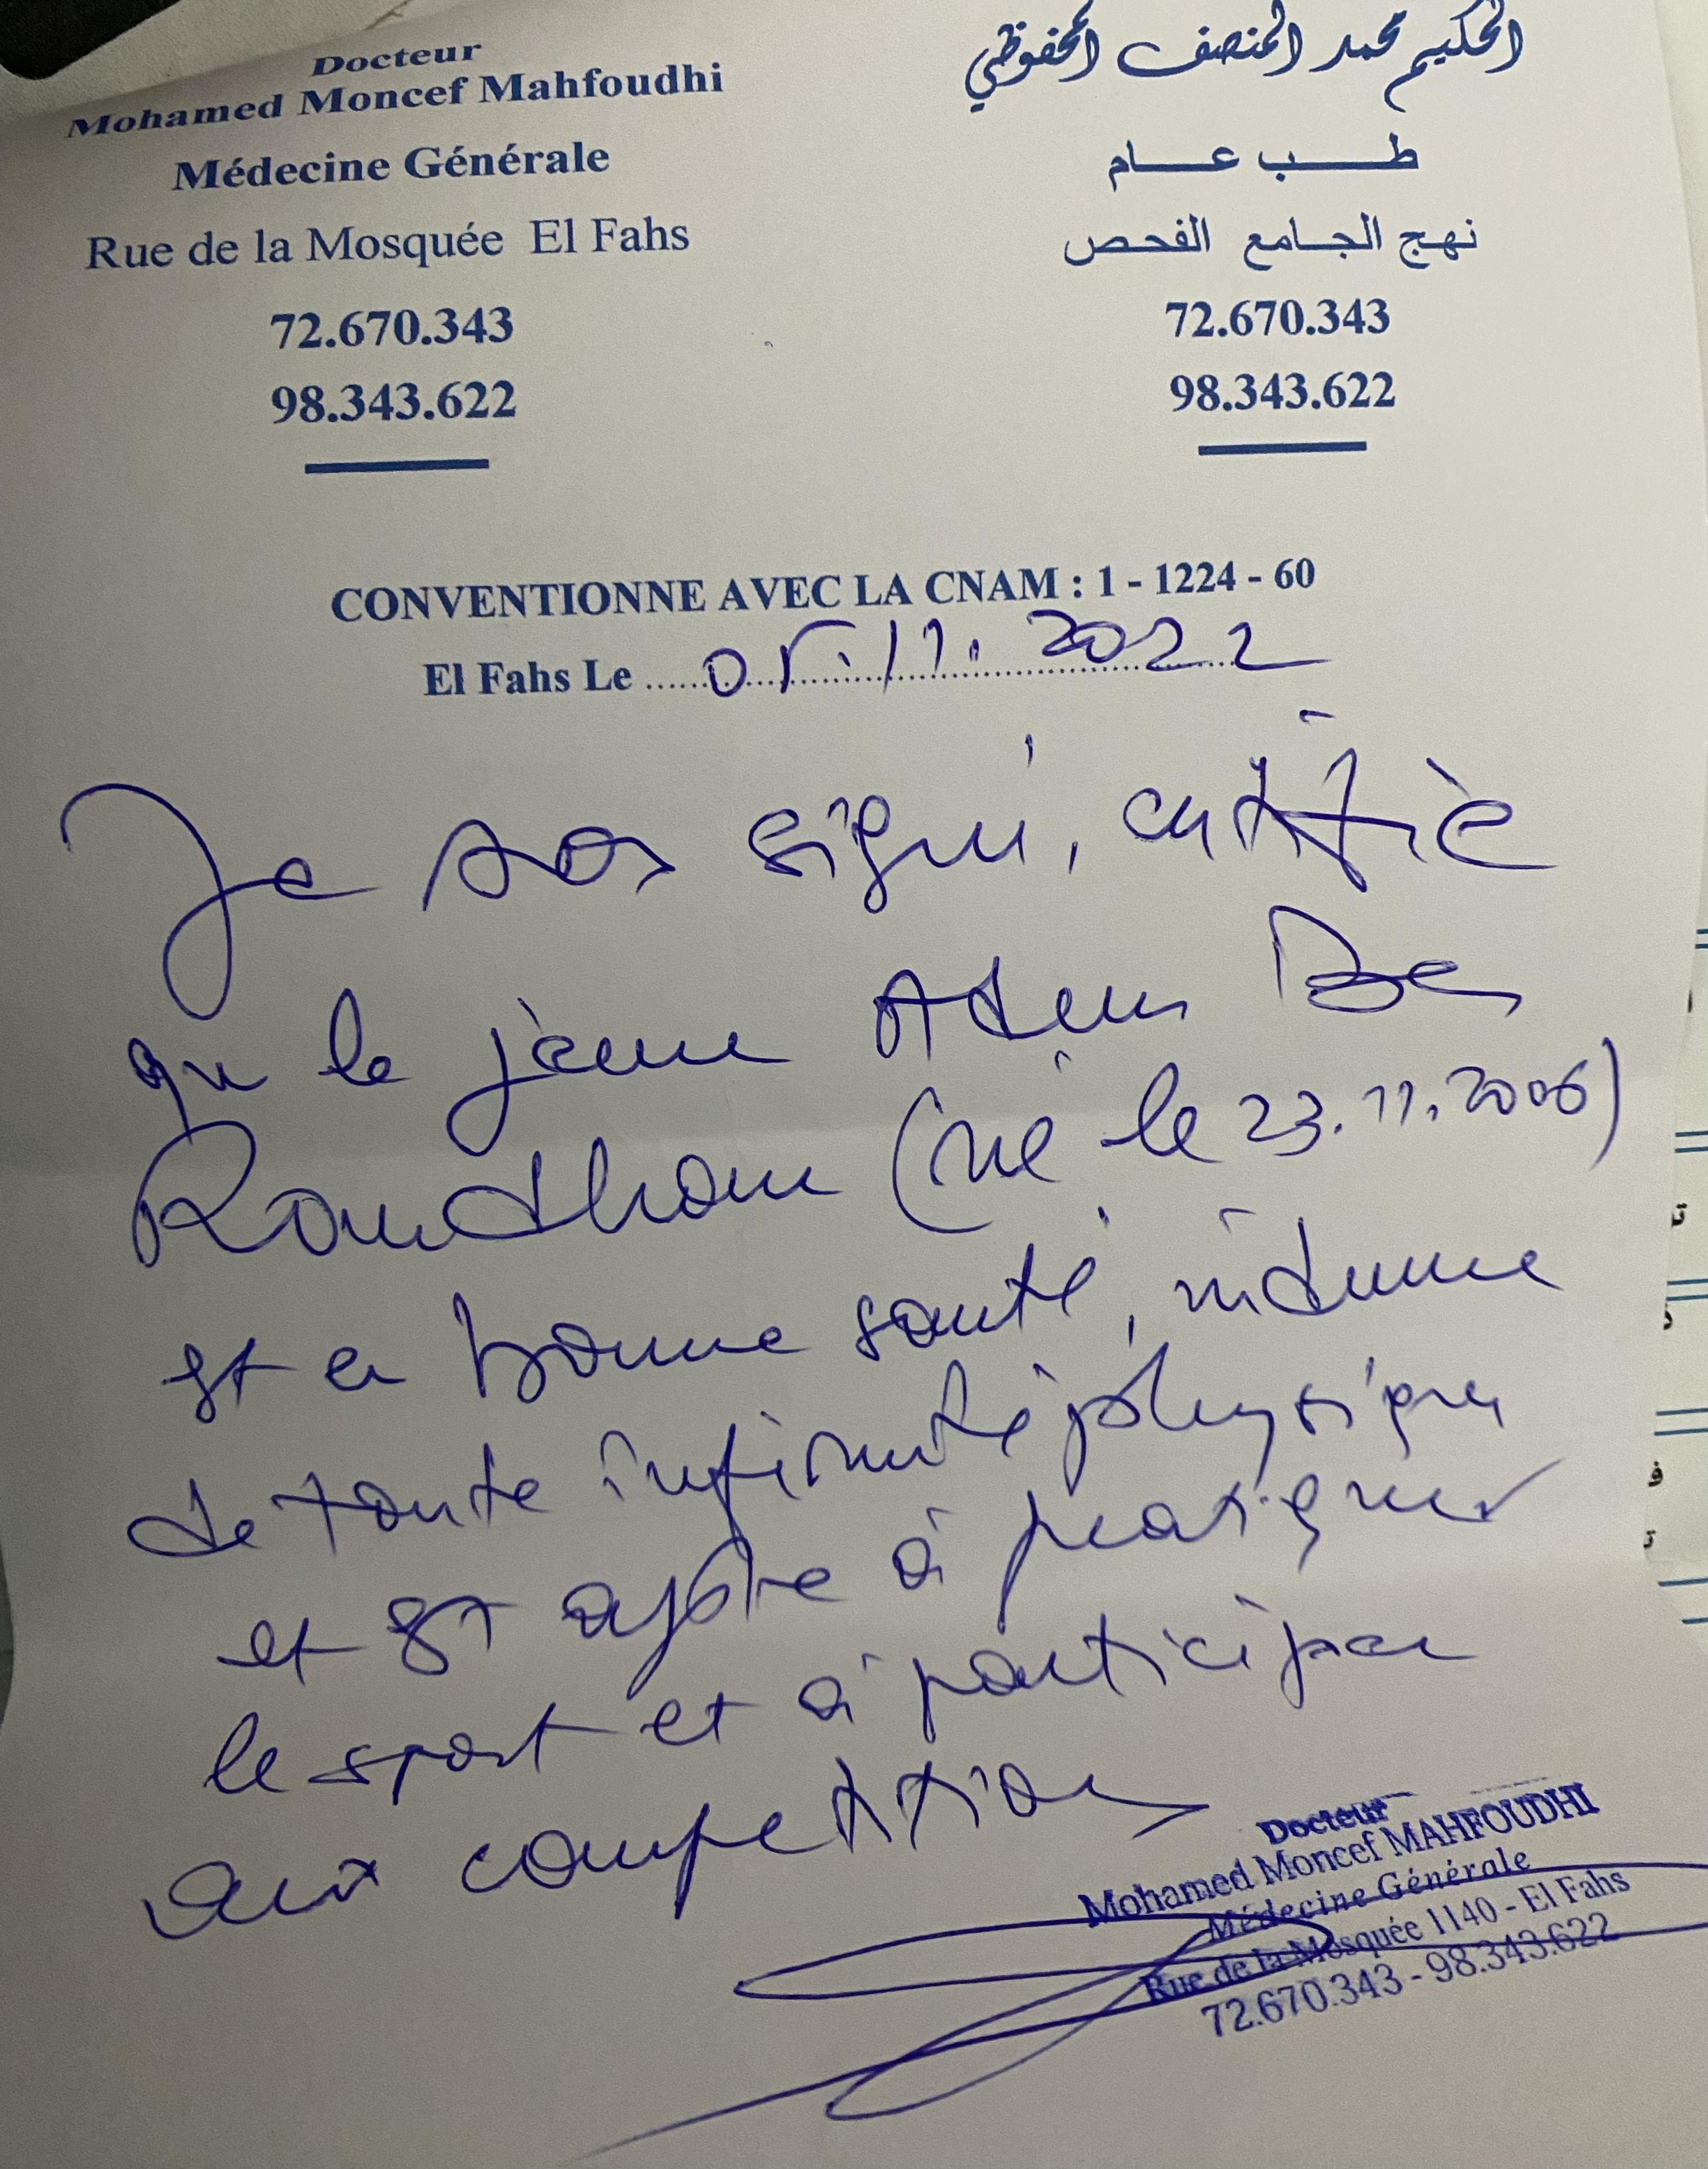 Docteur
Mohamed Moncef Mahfoudhi
Médecine Générale
Rue de la Mosquée El Fahs
72.670.343
98.343.622
الحكيم محمد المنصف المحفوظي
طب عام
نهج الجامع الفحص
72.670.343
98.343.622
CONVENTIONNE AVEC LA CNAM : 1 - 1224 - 60
El Fahs Le 05.11.2022
Je sous signé, certifie
que le jeune Adem Ben
Romdhane (né le 23.11.2006)
est en bonne santé, indemne
de toute infirmité physique
et est apte à pratiquer
le sport et à participer
aux compétition
Docteur
Mohamed Moncef MAHFOUDHI
Médecine Générale
Rue de la Mosquée 1140 - El Fahs
72.670.343 - 98.343.622